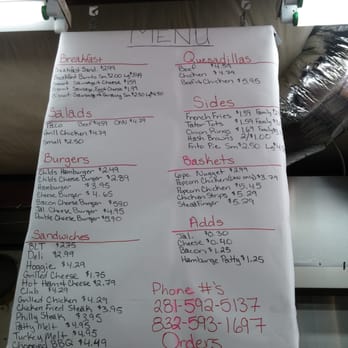 MENU
Breakfast
Breakfast Burrito Sm $2.00
Salads
Taco Beef $4.59 CKN $4.79
Grill Chicken $4.79
Small $2.50
Burgers
Childs Hamburger $2.49
Childs Cheese Burger $2.89
Hamburger $3.95
Cheese Burger $4.65
Bacon Cheese Burger $5.90
Jal. Cheese Burger $4.95
Double Cheese Burger $5.90
Sandwiches
BLT $2.25
Deli $2.99
Hoggie $4.29
Grilled Cheese $1.75
Hot Ham & Cheese $2.79
Club $4.29
Grilled Chicken $4.29
Chicken Fried Steak $3.95
Philly Steak $3.95
Patty Melt $4.95
Turkey Melt $4.95
Chopped BBQ $4.49
Quesadillas
Beef $4.59
Chicken $4.79
Beef & Chicken $5.95
Sides
French Fries $1.59 Family
Tator Tots $1.59 Family
Onion Rings $1.69 Family
Hash Browns 2/$1.00
Frito Pie Sm $2.50
Baskets
Nugget $2.99
Popcorn Chicken $3.79
Popcorn Chicken $5.45
Chicken Strips $5.29
Steakfinger $5.29
Adds
Jal. $0.30
Cheese $0.40
Bacon $1.25
Hamburger Patty $1.25
Phone #'s
281-592-5137
832-593-1697
Orders